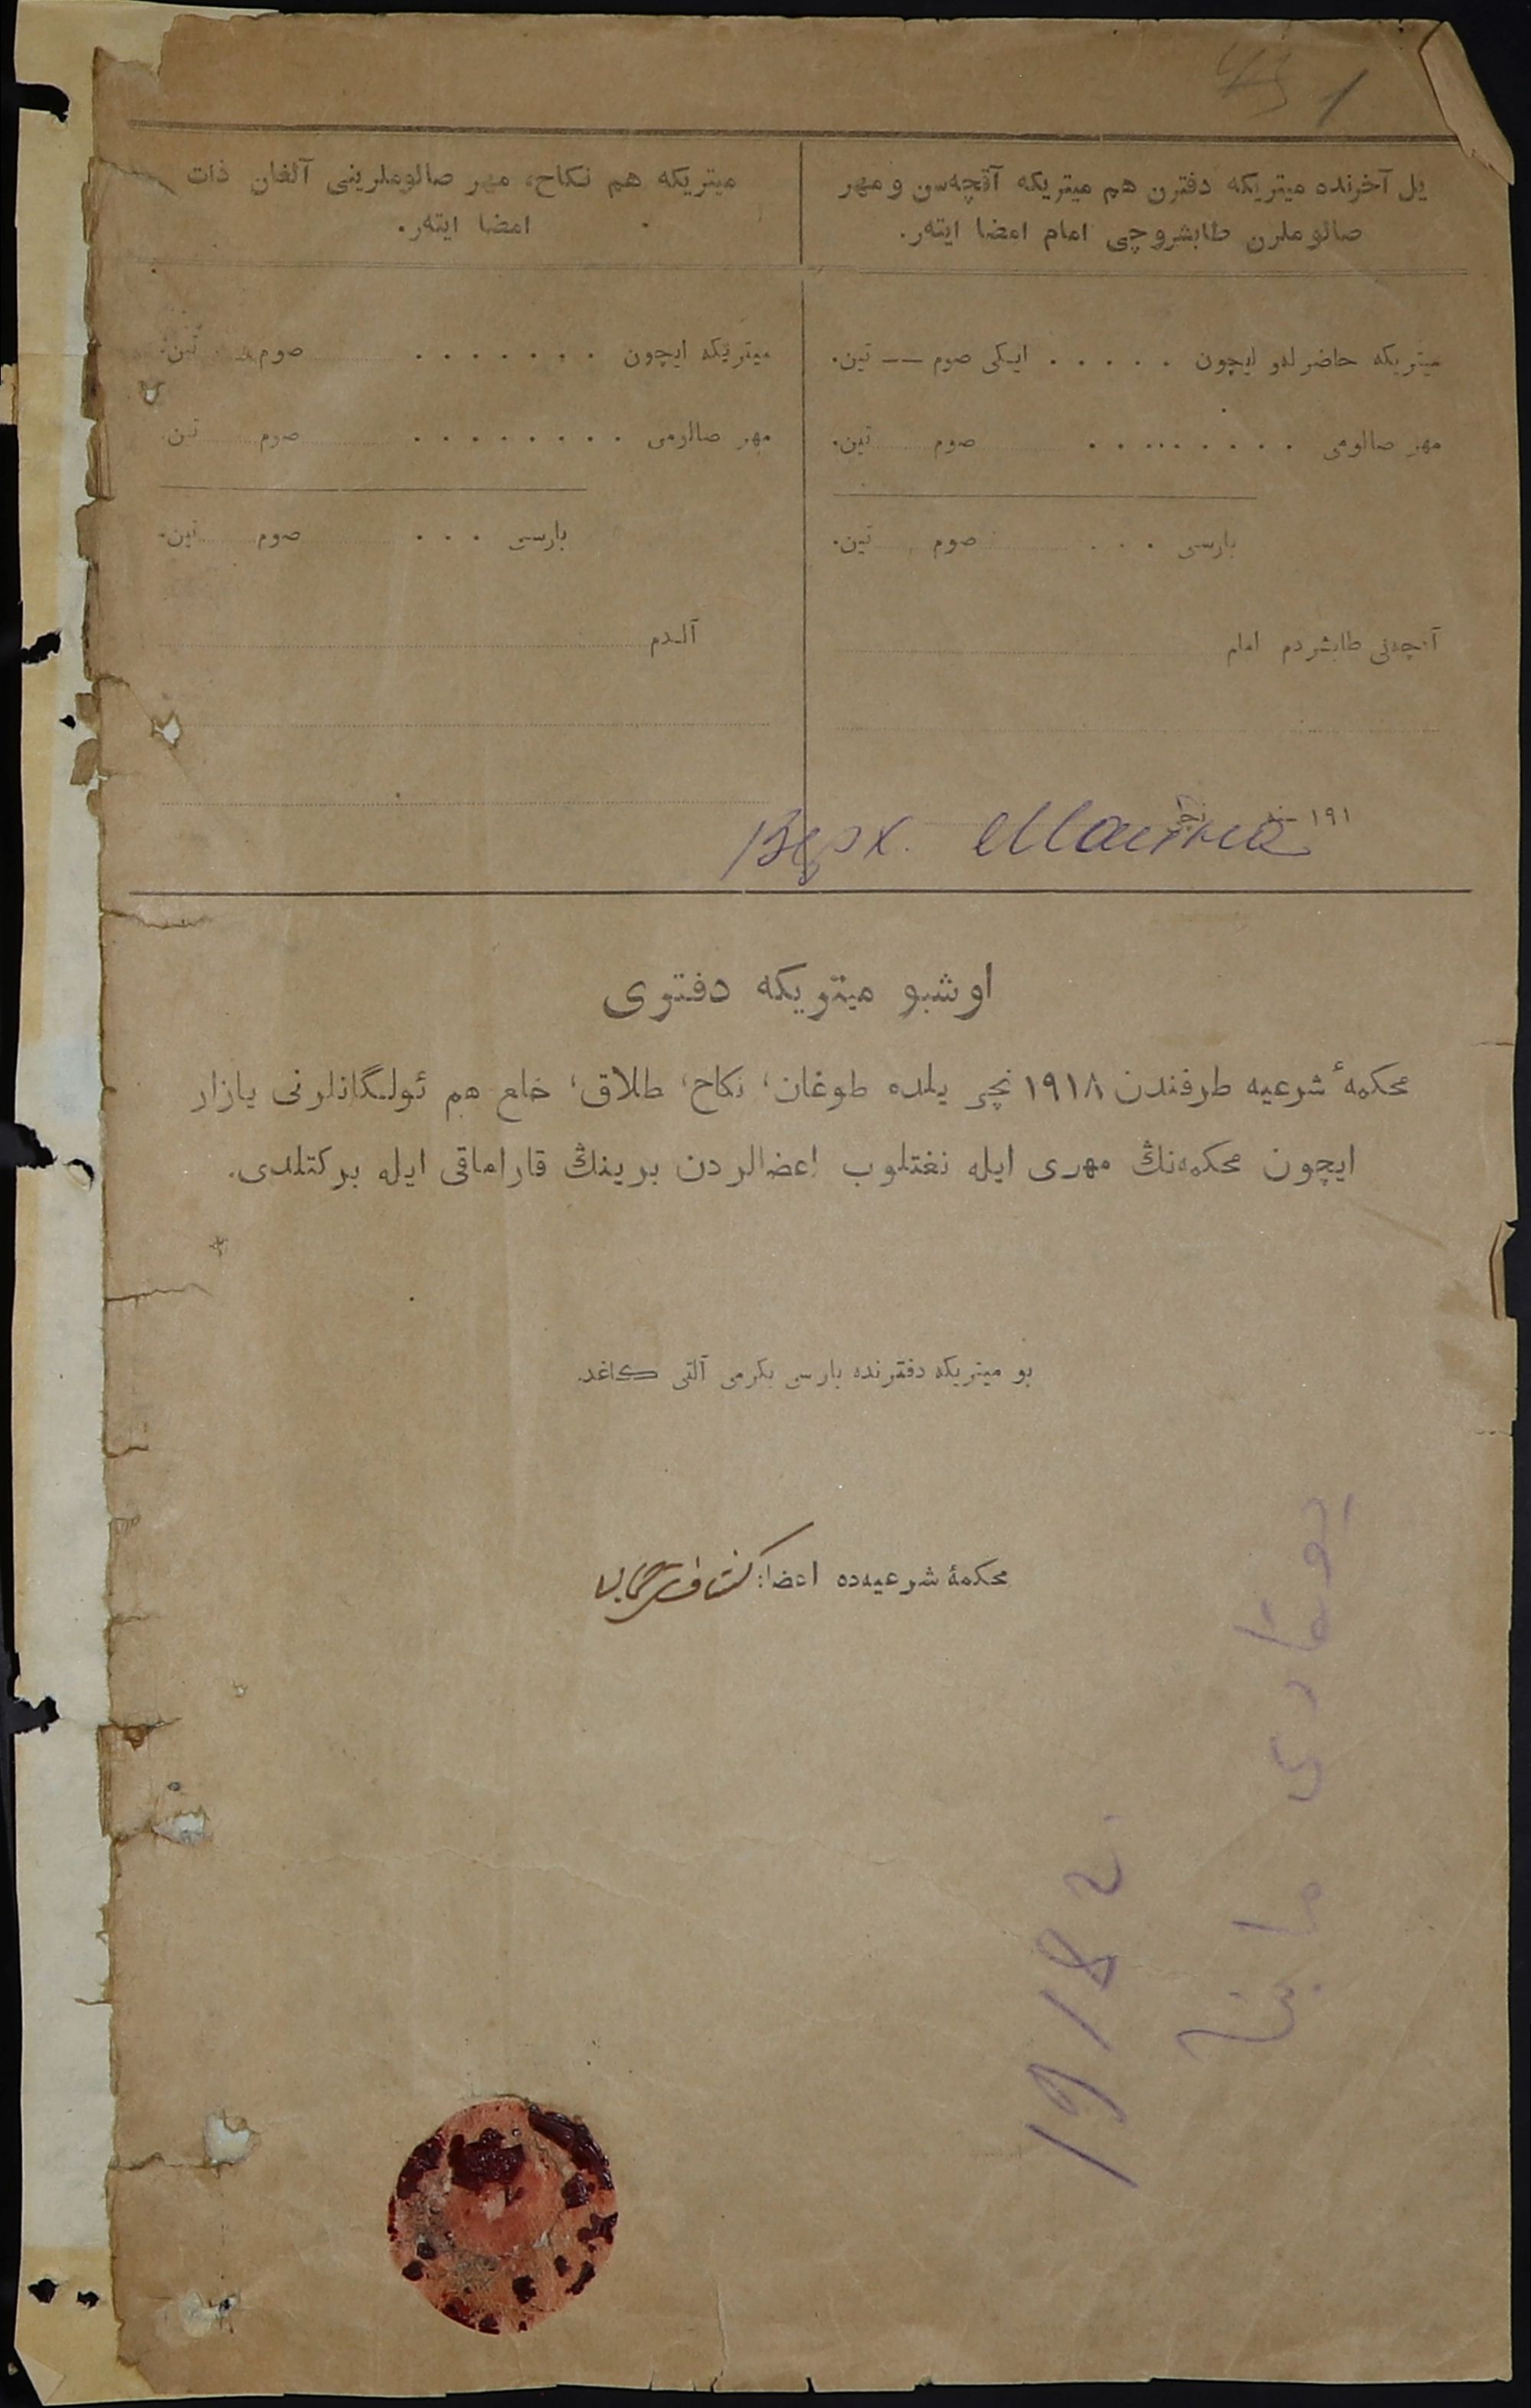 1
یل آخرنده میتریکه دفترن هم میتریکه آقچه‌سن و مهر
صالوملرن طابشروچی امام امضا ایتەر.
میتریکه حاضرلەو ایچون . . . . . ایکی صوم —— تین.
مهر صالومی . . . . . . . . . صوم تین.
بارسی . . . صوم تین.
آقچەنی طابشردم امام
۱۹۱ نچی
میتریکه هم نکاح، مهر صالوملرینی آلغان ذات
امضا ایتەر.
میتریکه ایچون . . . . . . . صوم تین.
مهر صالومی . . . . . . . . صوم تین.
بارسی . . . صوم تین.
آلـدم
Верх.
اوشبو میتریکه دفتری
محکمهٔ شرعیه طرفندن ۱۹۱۸ نچی یلده طوغان، نکاح، طلاق، خلع هم ئولگانلرنی یازار
ایچون محکمەنڭ مهری ایله نغتلوب اعضالردن برینڭ قاراماقی ایله برکتلدی.
بو میتریکه دفترنده بارسی یکرمی آلتی کاغد.
محکمهٔ شرعیەده اعضا:
1918 г.